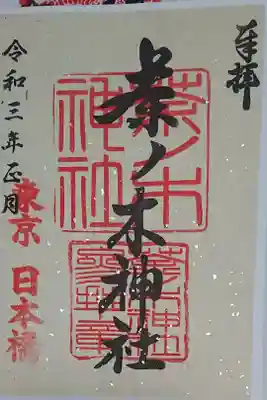 奉拝
茶ノ木神社
茶ノ木
神社
令和三年正月
東京 日本橋